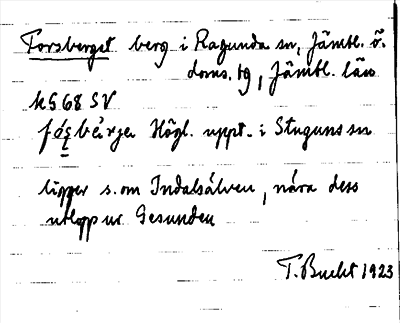 Forsberget berg i Ragunda sn, Jämtl. ö.
doms. tg, Jämtl. län
k568 SV
Högl. uppt. i Stuguns sn
ligger s. om Indalsälven, nära dess
utlopp ur Gesunden
T. Bucht 1923